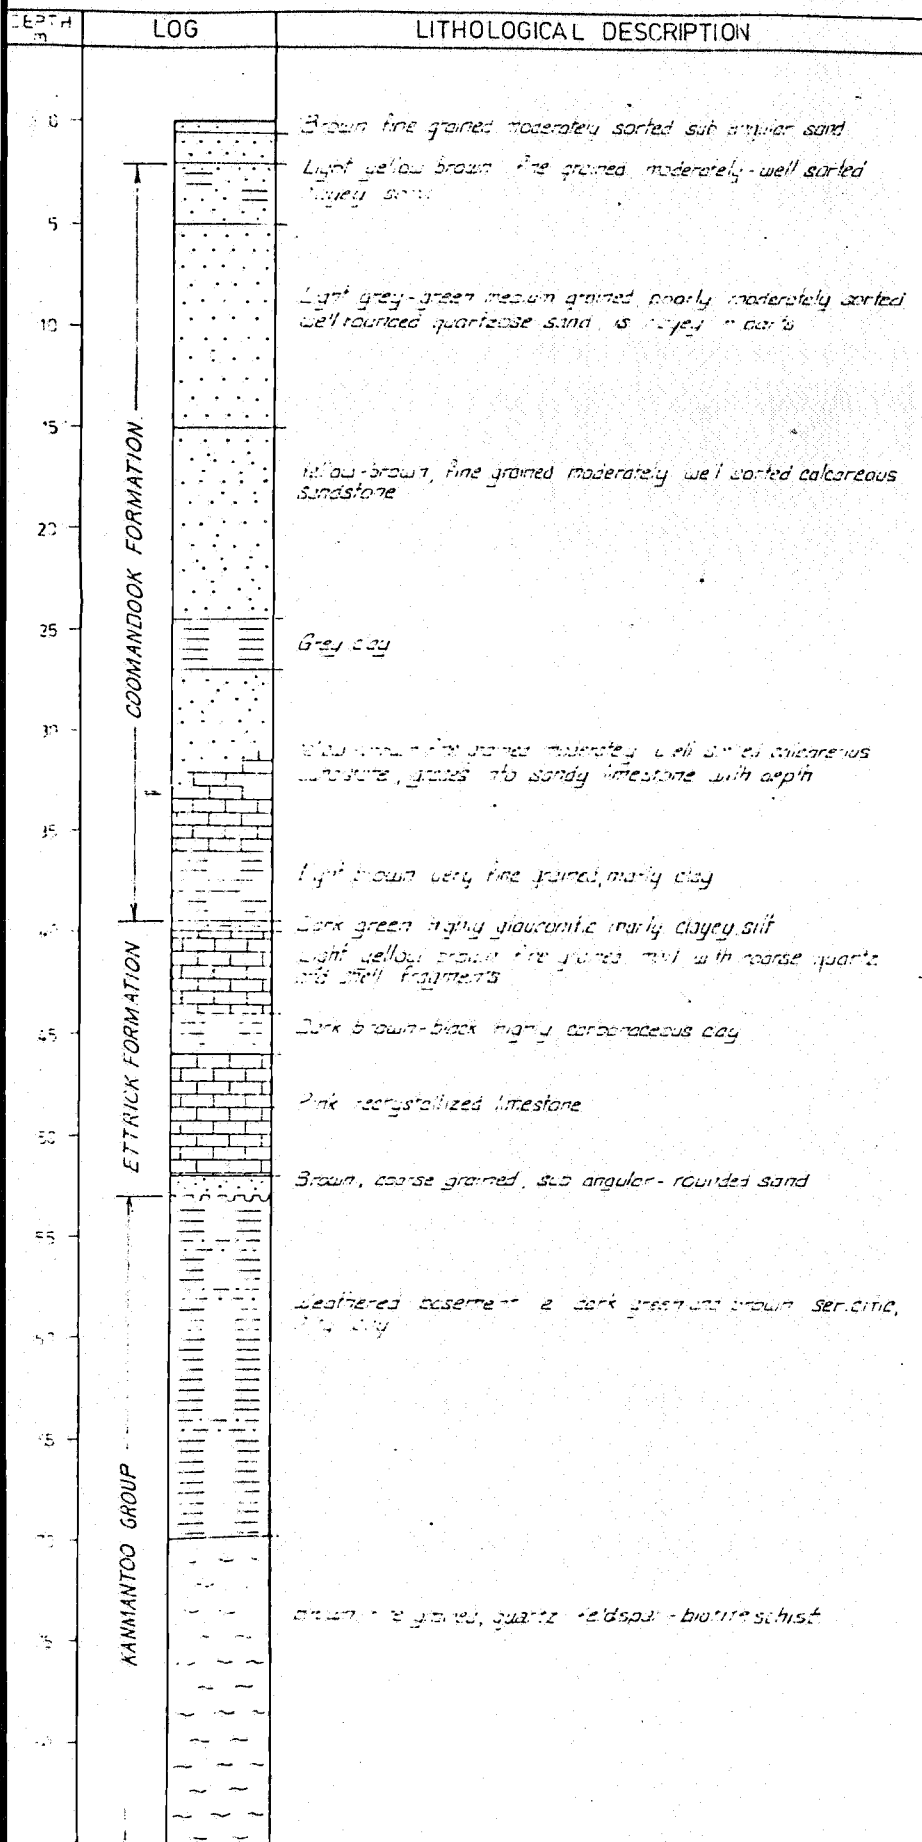 DEPTH
m
LOG
LITHOLOGICAL DESCRIPTION
0
Brown fine grained moderately sorted sub angular sand
Light yellow brown fine grained, moderately-well sorted
clayey sand
5
Light grey-green medium grained, poorly moderately sorted
well rounded quartzose sand, is clayey in parts
10
15
Yellow-brown, fine grained moderately well sorted calcareous
sandstone
20
COOMANDOOK FORMATION
25
Grey clay
30
Yellow-brown fine grained moderately well sorted calcareous
sandstone, grades into sandy limestone with depth
35
Light brown very fine grained, marly clay
40
Dark green highly glauconitic marly clayey silt
Light yellow brown fine grained marl with coarse quartz
and shell fragments
ETTRICK FORMATION
45
Dark brown-black highly carbonaceous clay
Pink recrystallized limestone
50
Brown, coarse grained, sub angular-rounded sand
55
Weathered basement dark green and brown sericitic,
clay
65
KANMANTOO GROUP
Brown fine grained, quartz feldspar-biotite schist
75